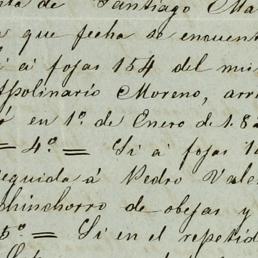 ta de Santiago Ma
que fecha se encuent
i a fojas 154 del mis
Apolinario Moreno, arr
en 1º de Enero de 182
= 4º = Si a fojas 1
seguida á Pedro Vale
chinchorro de obejas y
5º = Si en el repetid